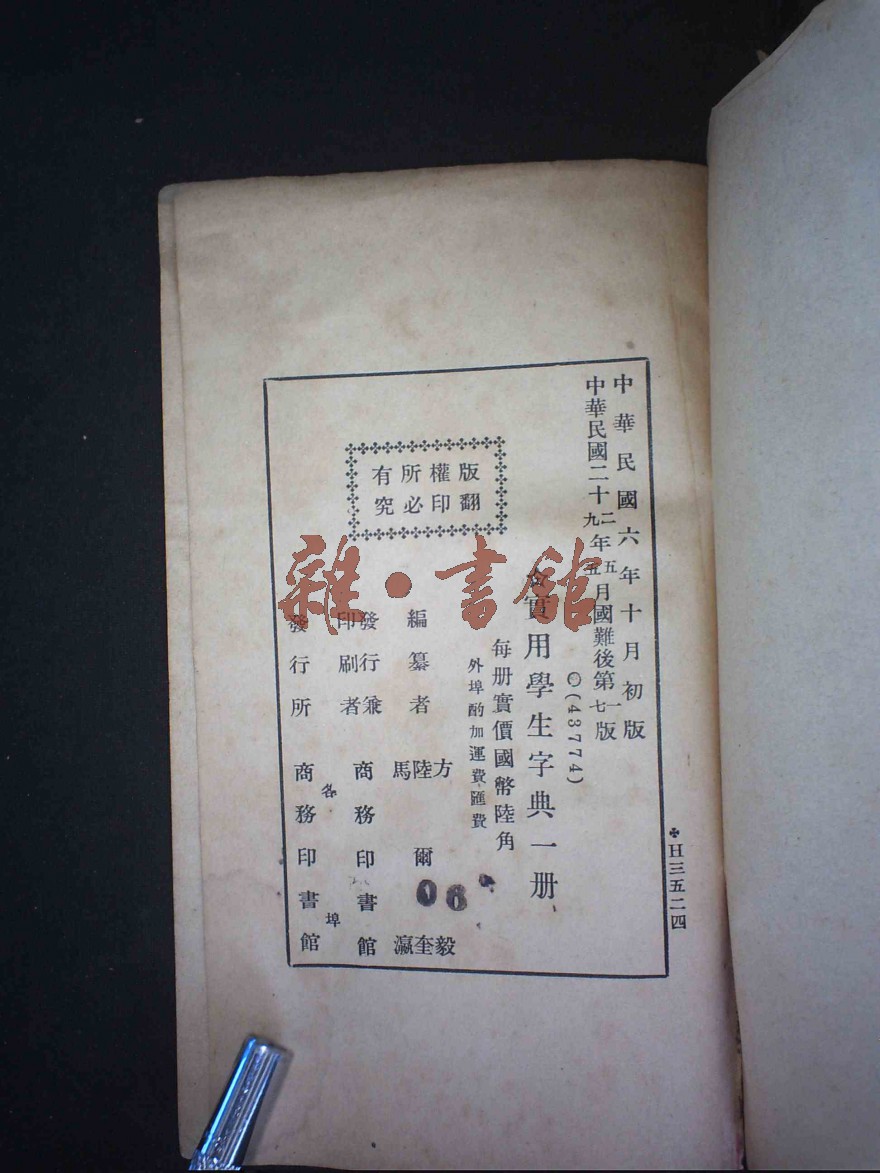 H三五二四
中華民國六年十月初版
中華民國二十二九年五五月國難後第一七版
(43774)
實用學生字典一册
每册實價國幣陸角
外埠酌加運費匯費
版權所有
翻印必究
編纂者 方毅 陸爾奎 馬瀛
發行兼印刷者 商務印書館
發行所 各埠 商務印書館
06
雜·書館